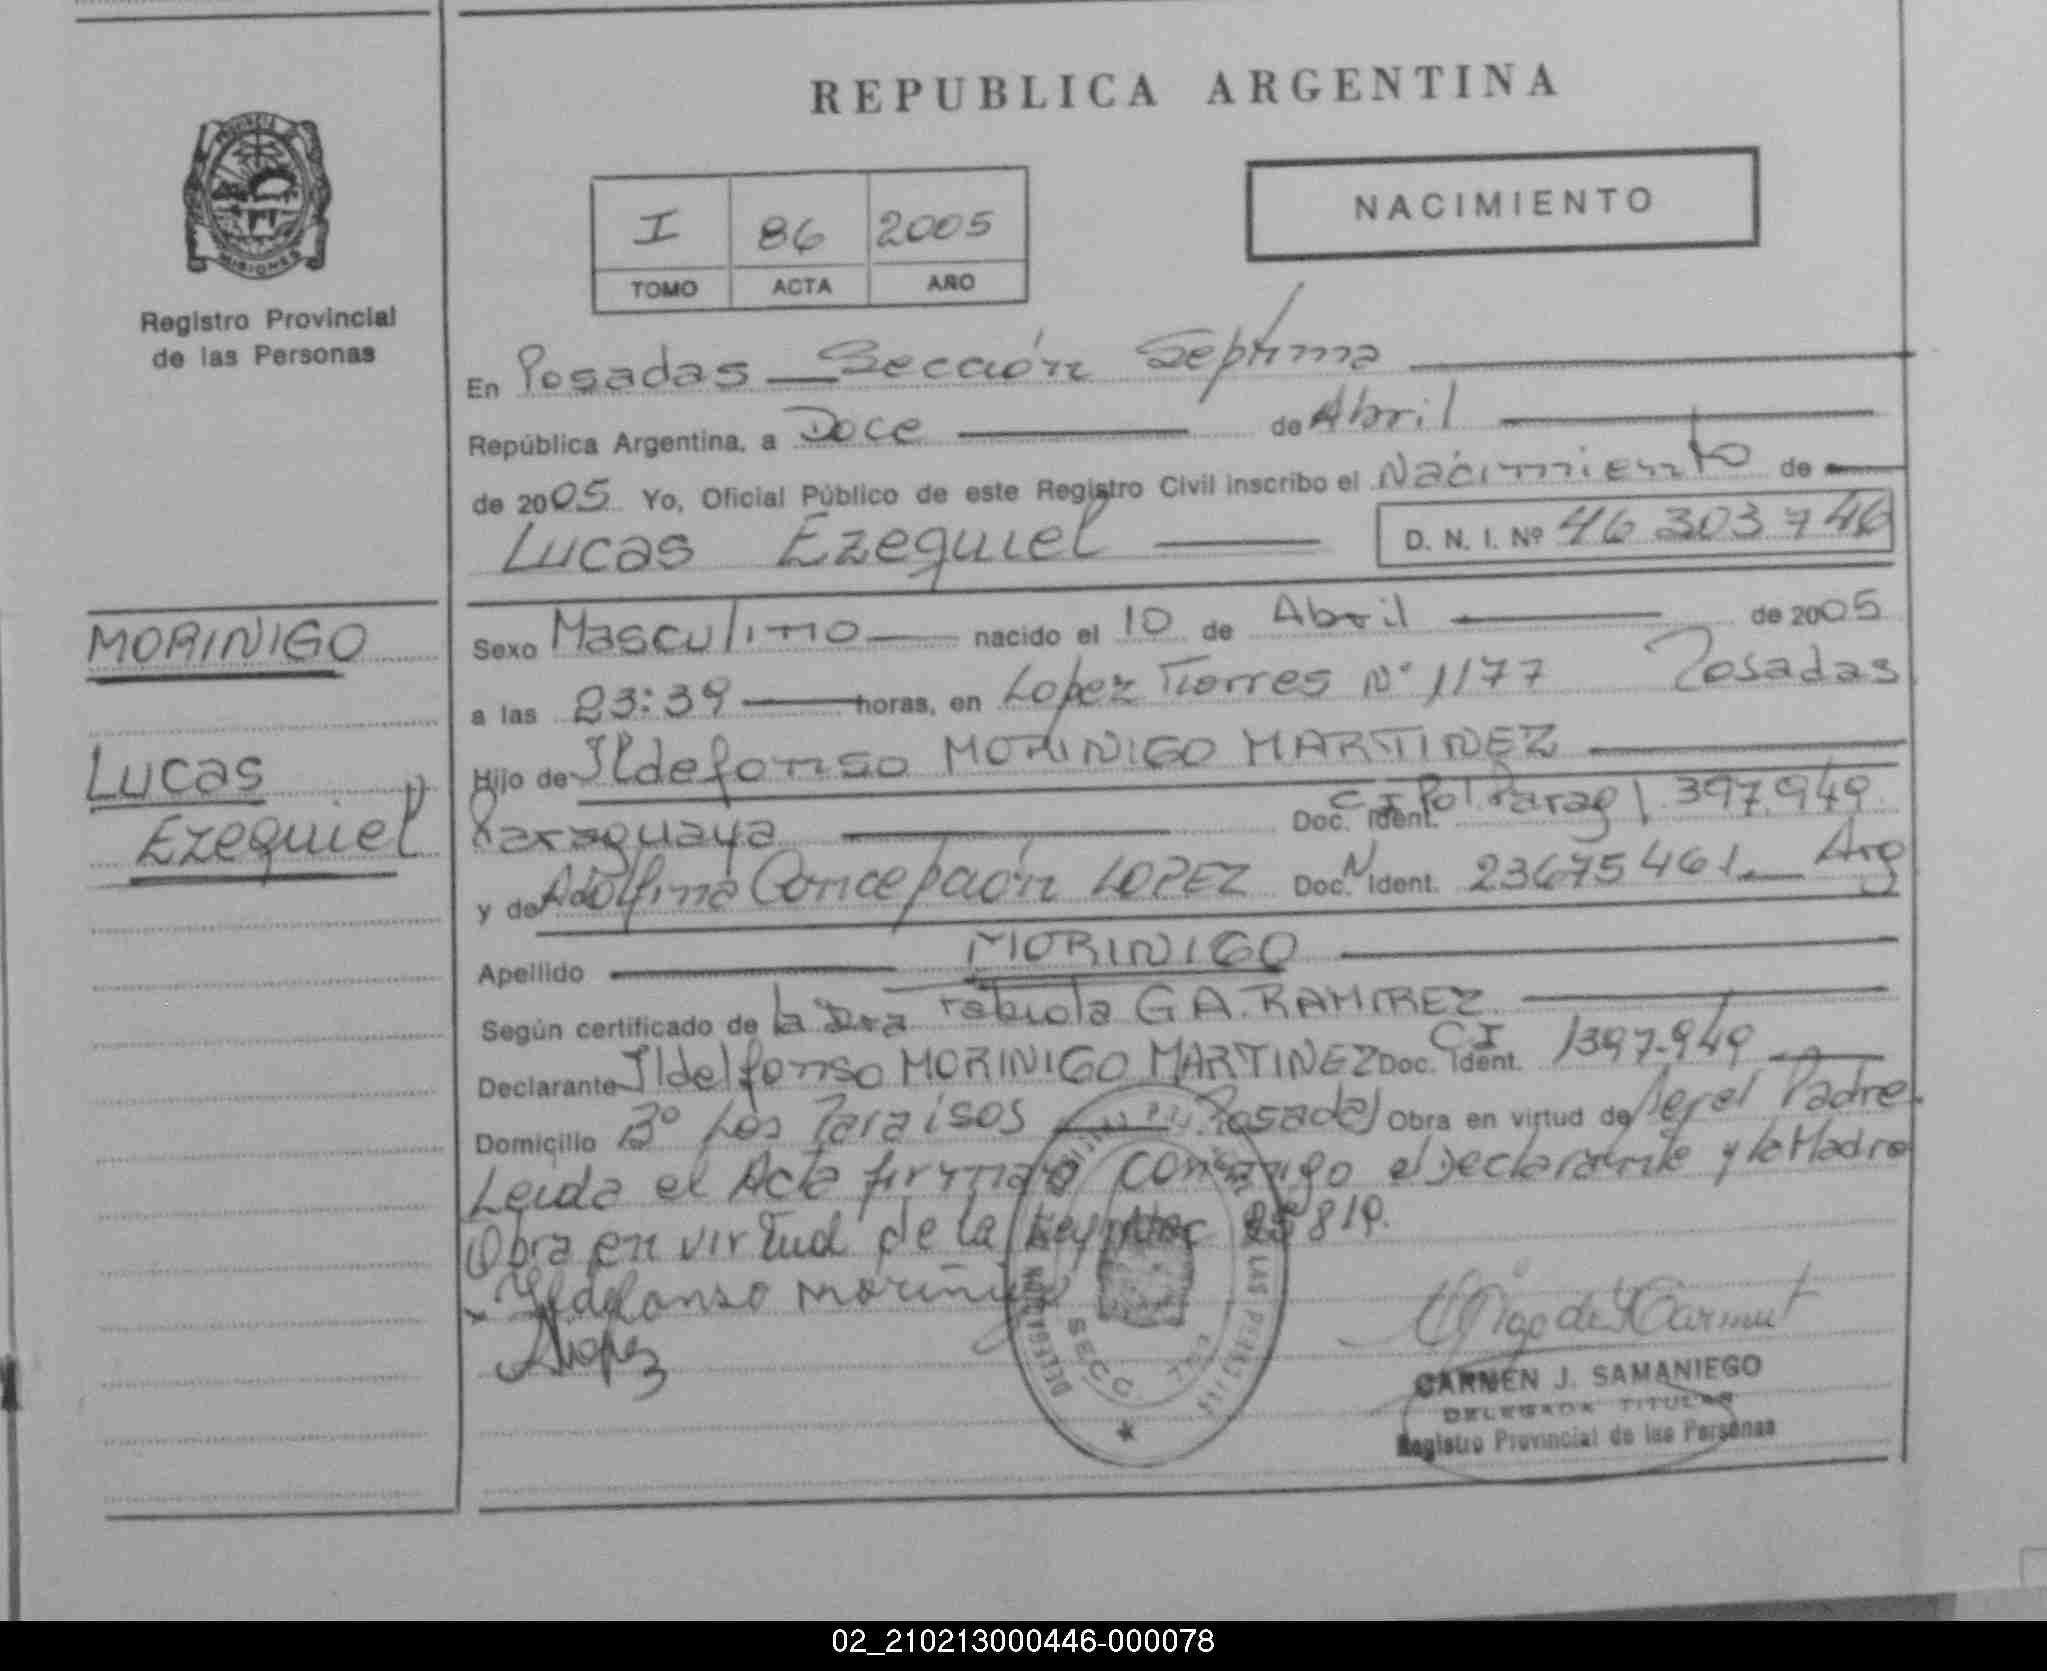 REPUBLICA ARGENTINA
PROVINCIA DE
MISIONES
Registro Provincial
de las Personas
I 86 2005
TOMO ACTA AÑO
NACIMIENTO
En Posadas Sección Septima
República Argentina, a Doce de Abril
de 2005 Yo, Oficial Público de este Registro Civil inscribo el Nacimiento de
Lucas Ezequiel D. N. I. Nº 46 303 746
MORINIGO
Lucas
Ezequiel
Sexo Masculino nacido el 10 de Abril de 2005
a las 23:39 horas, en Lopez Torres Nº 1177 Posadas
Hijo de Ildefonso MORINIGO MARTINEZ
Paraguaya Doc. Ident. C I Pol Parag 1.397.949
y de Adolfina Concepción LOPEZ Doc. N Ident. 23675461 Arg
Apellido MORINIGO
Según certificado de la Dra Fabiola G A. RAMIREZ
Declarante Ildelfonso MORINIGO MARTINEZ Doc. Ident. C I 1397.949
Domicilio Bº Los Paraisos Posadas Obra en virtud de ser el Padre
Leida el Acta firman conmigo el Declarante y la Madre
Obra en virtud de la Ley Nac 25819.
Ildefonso Moriñigo
ALopez
SECC.
LAS PERSONAS
CARMEN J. SAMANIEGO
DELEGADA TITULAR
Registro Provincial de las Personas
02_210213000446-000078